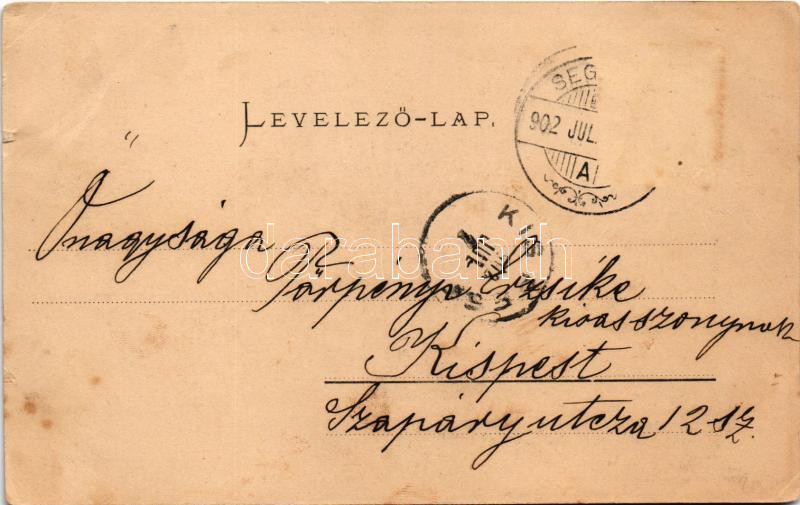 LEVELEZŐ-LAP.
SEG
902 JUL.
A
Őnagysága
Törpényi Erzsike
kisasszonynak
Kispest
Szapáry utcza 12 sz.
KISP
darabanth